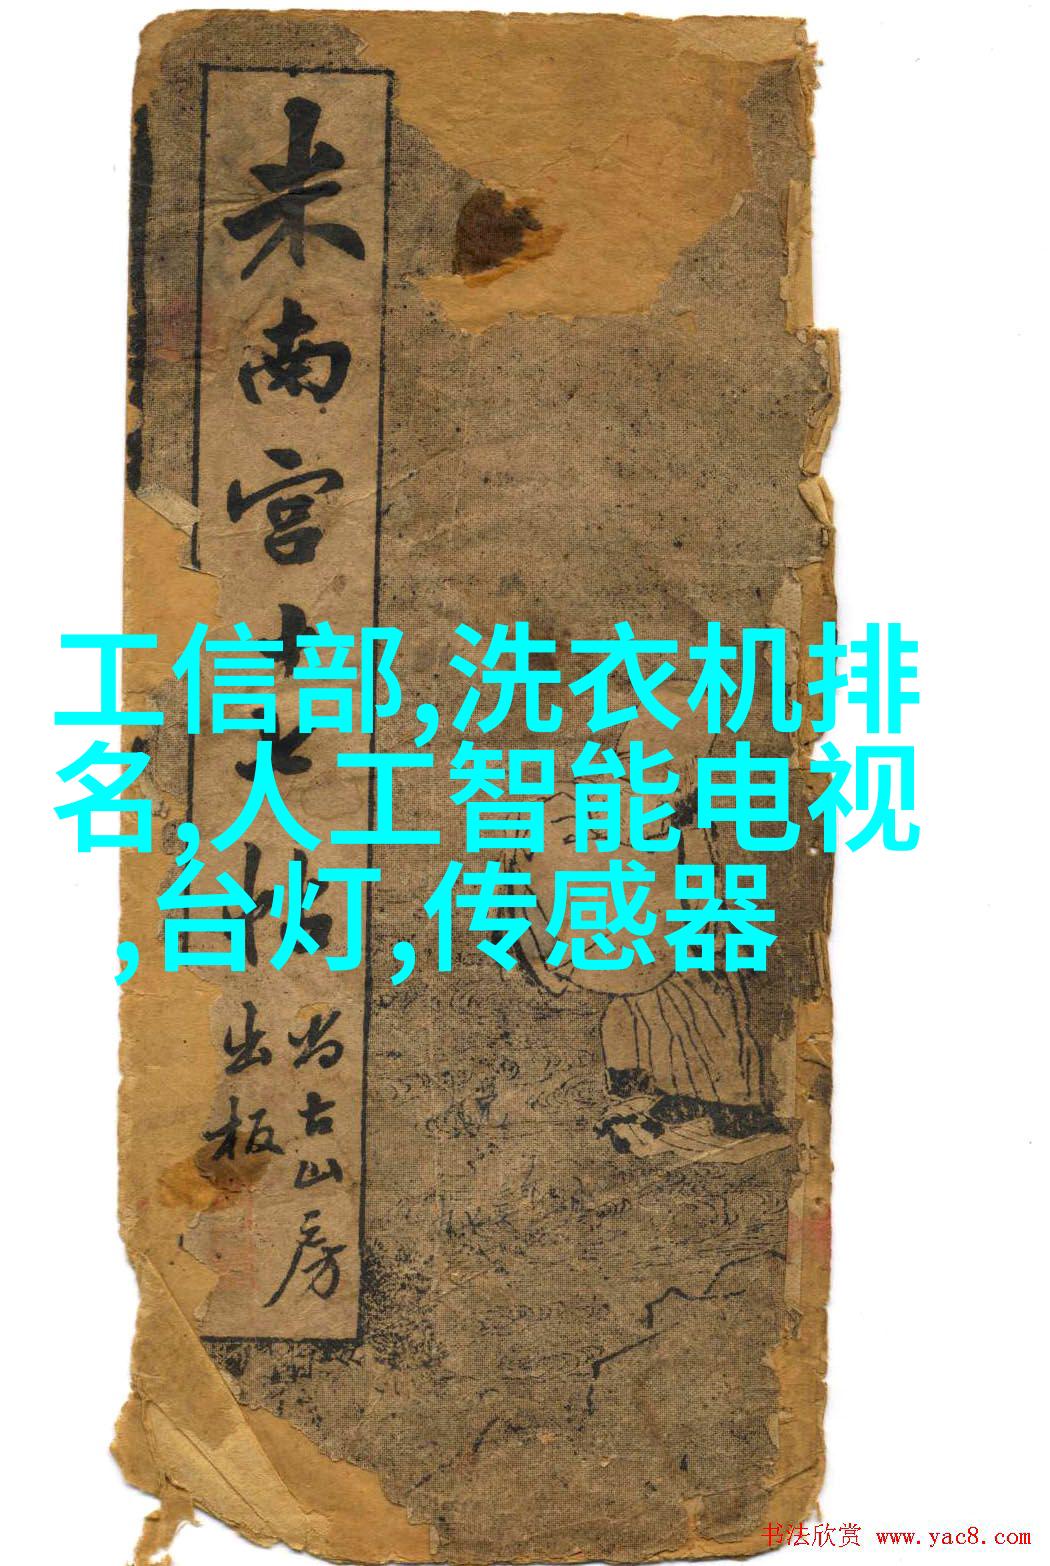 米南宫十七帖
尚古山房
出板
工信部,洗衣机排
名,人工智能电视
,台灯,传感器
书法欣赏 www.yac8.com